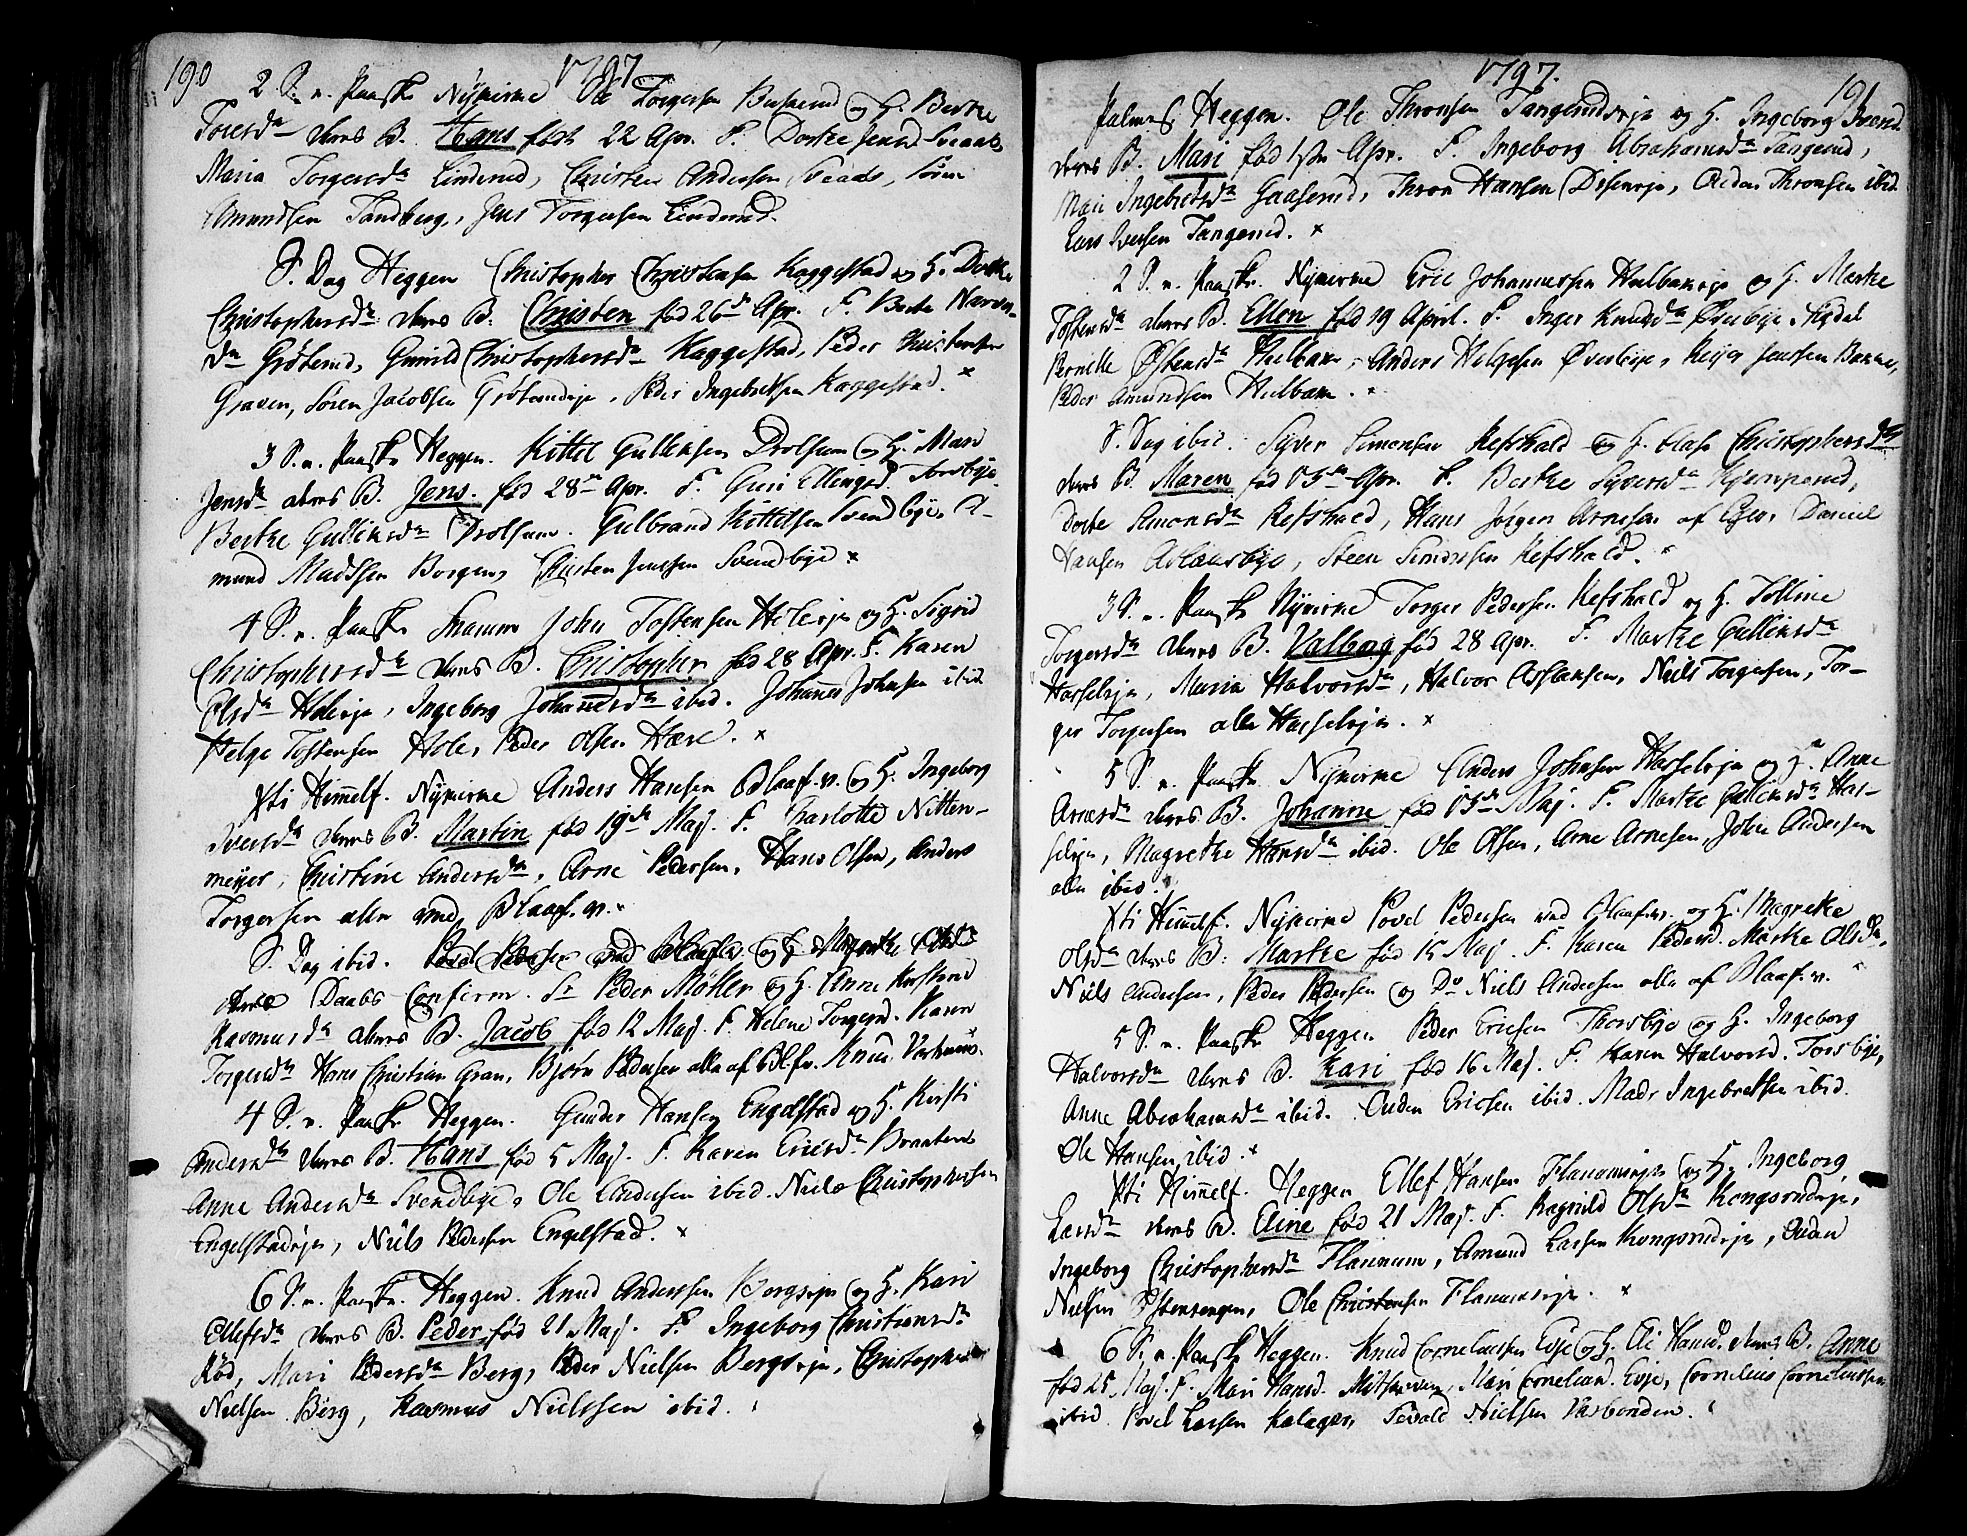 190
1797
2 S. n. Paaske Nykirke Ole Torgersen Buskerud og H. Berthe
Toresdr deres B. Hans født 22 Apr. F. Dorthe Jensd. Sveaas,
Maria Torgersdr Linderud, Christen Andersen Sveaas, Sören
Amundsen Sandberg, Jens Torgersen Linderud.
S. Dag Heggen Christopher Christensen Kaggestad og H. Dorthe
Christophersdr deres B. Christen fød 26de Apr. F. Berthe
dr Gröterud, Gunild Christophersdr Kaggestad, Peder Christensen
Graven, Sören Jacobsen Gröterudeje, Peder Ingebretsen Kaggestad. ×
3 S. n. Paaske Heggen. Kittel Gullichsen Drolsum og H. Mari
Jensdr deres B. Jens. fød 28de Apr. F. Guri Ellingsd. Torsbye.
Berthe Gulliksdr Drolsum. Gulbrand Kittilsen Svendbye, A-
mund Madssen Borgen, Christen Jenssen Svendbye ×
4 S. n. Paaske Snarum John Tostensen Holeeje og H. Sigrid
Christophersdr deres B. Christopher fød 28 Apr. F. Karen
Olsdr Holeeje, Ingeborg Johannesdr ibid. Johannes Johnsen ibid
Helge Tostensen Hole, Peder Olsen Hære. ×
Xti Himelf. Nykirke Anders Hansen Blaaf. v. og H. Ingeborg
Iversdr deres B. Martin fød 19de Maj. F. Charlotte Nitter-
meijer, Christine Andersdr, Arne Pedersen, Hans Olsen, Anders
Torgersen alle ved Blaaf. v. ×
S. Dag ibid. Povel Pedersen ved Blaafv. og H. Magrethe Olsdr
deres Daabs Confirm. Sr Peder Möller og H. Anne Kirstine
Rasmusdr deres B. Jacob fød 12 Maj. F. Helene Torgersd. Karen
Torgersdr Hans Christian Gran, Bjørn Pedersen alle af Bl. fv. Knud
4 S. n. Paaske Heggen. Gunder Hansen Engelstad og H. Kirsti
Andersdr deres B. Hans fød 5 Maj. F. Karen Ericsdr Braaten
Anne Andersdr Svendbye, Ole Andersen ibid. Niels Christophersen
Engelstadeje, Niels Pedersen Engelstad. ×
6 S. n. Paaske. Heggen. Knud Anderssen Bergseje og H. Kari
Ellefsdr deres B. Peder fød 21 Maj. F. Ingeborg Christiansdr
Rød, Mari Pedersdr Berg, Peder Nielsen Bergseje, Christopher
Nielsen Berg, Rasmus Nielssen ibid.
1797.
191
Palmes. Heggen. Ole Thronsen Tangerudeje og H. Ingeborg Iversd.
deres B. Mari fød 1ste Apr. F. Ingeborg Abrahamsdr Tangerud,
Mari Ingebretsdr Gaaserud, Thron Hansen, Auden Thronsen ibid
Lars Iversen Tangerud. ×
2 S. n. Paaske. Nykirke Eric Johannessen Hulbakeje og H. Marthe
Tostensdr deres B. Ellen fød 19 April. F. Inger Knudsdr Øverbye Sigdal
Pernille Østensdr Hulbak, Anders Helgesen Øverbye, Reijer Jenssen Bakke,
Peder Amundsen Hulbak. ×
S. Dag ibid. Syver Simonsen Refshald og H. Elase Christophersdtr
deres B. Maren fød 15de Apr. F. Berthe Syversdr Kjempenud,
Dorte Simonsdr Refshald, Hans Jörgen Arnesen af Eger, Daniel
Hansen Aslaugsbye, Steen Simonsen Refshald. ×
3 S. n. Paaske Nykirke Torger Pedersen Refshald og H. Tolline
Torgersdr deres B. Valborg fød 28 Apr. F. Marthe Gulliksdr
Hasseleje, Maria Halvorsdr, Halvor Asslaksen, Niels Torgersen, Tor-
ger Torgersen alle Hasseleje. ×
5 S. n. Paaske Nykirke Anders Johnsen Hasseleje og H. Anne
Arnesdr deres B. Johanne fød 13de Maj. F. Marthe Gulliksdr Has-
seleje, Magrethe Hansdr ibid. Ole Olsen, Arne Arnesen, John Andersen
alle ibid.
Xti Himelf. Nykirke Povel Pedersen ved Blaaf. v. og H. Magrethe
Olsdr deres B. Marthe fød 15 Maj. F. Karen Pedersd. Marthe Olsdr,
Niels Andersen, Peder Pedersen og Do Niels Andersen alle af Blaaf. v.
5 S. n. Paaske Heggen Peder Ericsen Thorsbye og H. Ingeborg
Halvorsdr deres B. Kari fød 16 Maj. F. Karen Halvorsd. Torsbye,
Anne Abrahamsdr ibid. Auden Ericsen ibid. Mads Ingebretsen ibid.
Ole Hansen ibid. ×
Xti Himelf. Heggen Ellef Hansen Flaanumeje og H. Ingeborg
Larsdr deres B. Eline fød 21 Maj. F. Ragnild Olsdr Kongsrudeje,
Ingeborg Christophersdr Flannum, Amund Larsen Kongsrudeje, Auden
Nielsen Østensengen, Ole Christensen Flannumeje. ×
6 S. n. Paaske Heggen. Knud Corneliussen Evje og H. Eli Hansd. deres B. Anne
fød 25 Maj. F. Mari Hansd., Mari Corneliusd. Evje, Cornelius Corneliussen
ibid. Povel Larsen Kalager, Tevald Nielsen Varbonden.